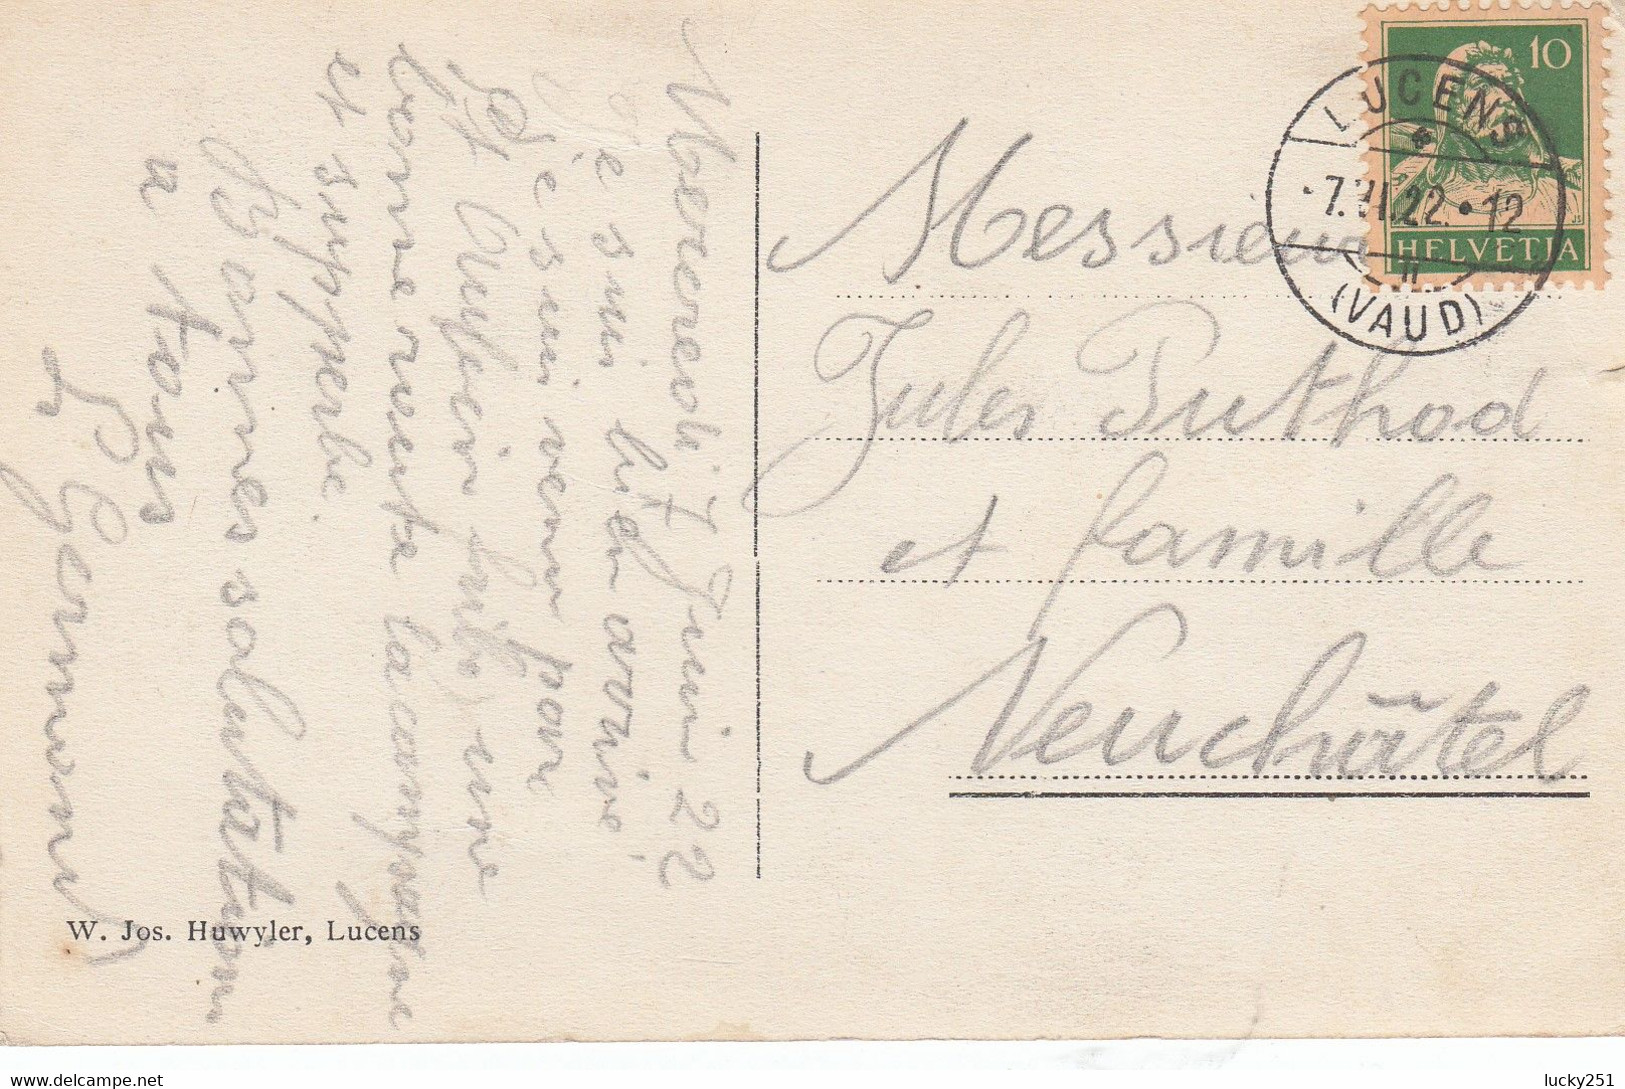 Mercredi 7 Juin 22
Je suis bien arrivé
Je suis venu par
St Aubin
bonne route la campagne
et superbe.
Bonnes salutation
a tous
L Germond
W. Jos. Huwyler, Lucens
10
HELVETIA
LUCENS
7.VI.22. 12
(VAUD)
Messieur
Jules Puthod
et famille
Neuchâtel
lucky251
www.delcampe.net